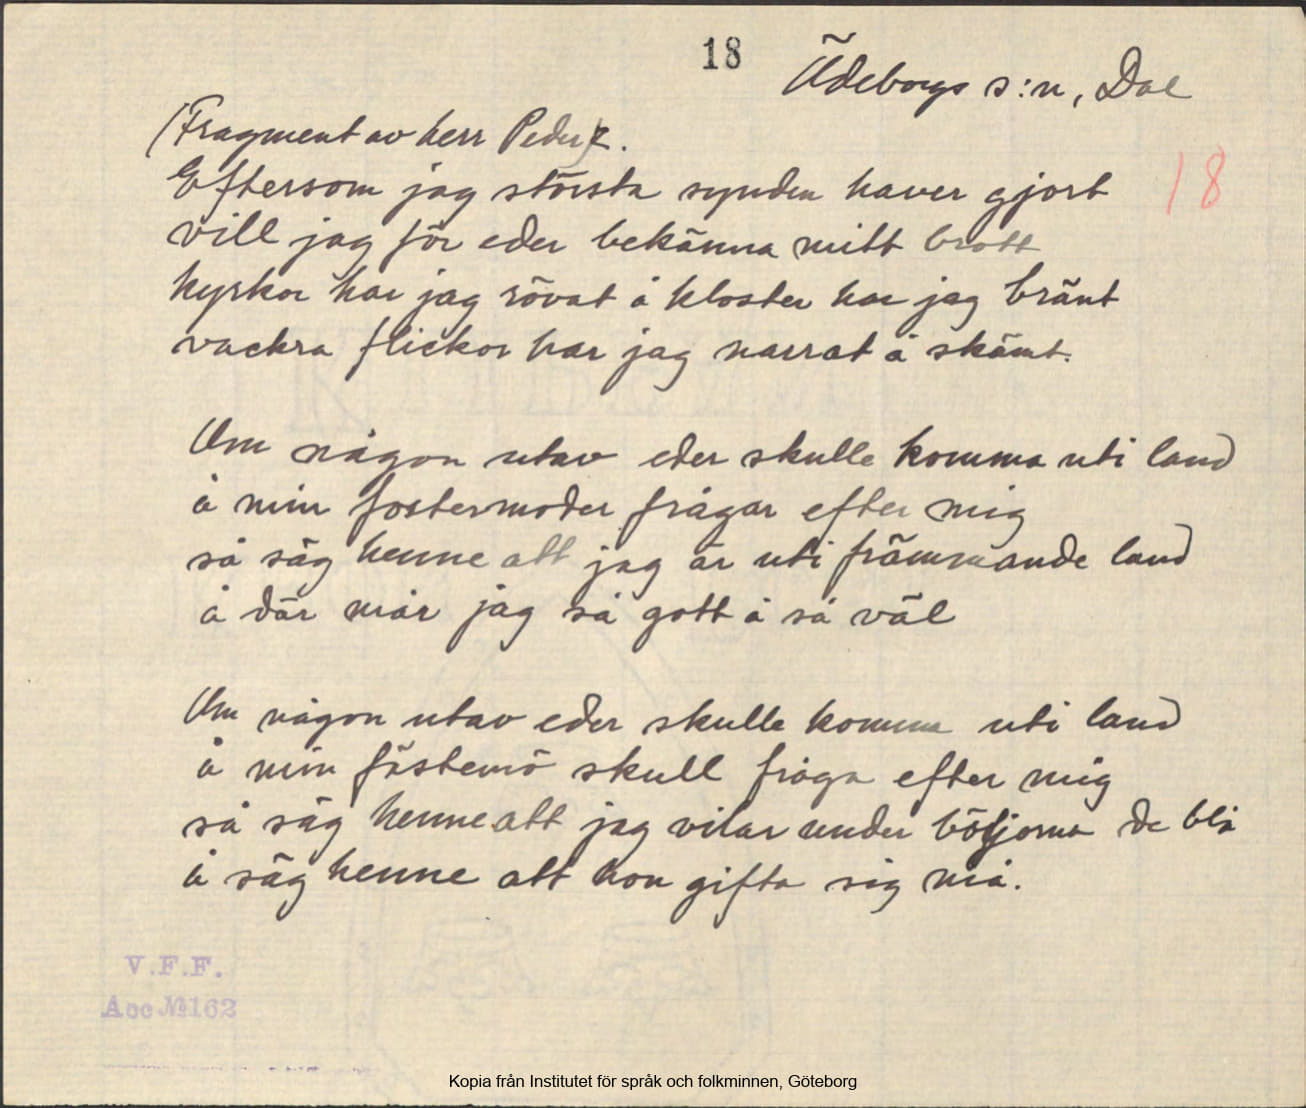 18
Ödeborgs s:n, Dal
(Fragment av herr Peder).
18
Eftersom jag största synden haver gjort
vill jag för eder bekänna mitt brott
kyrkor har jag rövat å kloster har jag bränt
vackra flickor har jag narrat å skämt.
Om någon utav eder skulle komma uti land
å min fostermoder frågar efter mig
så säg henne att jag är uti främmande land
å där mår jag så gott å så väl
Om någon utav eder skulle komma uti land
å min fästemö skull fråga efter mig
så säg henne att jag vilar under böljorna de blå
å säg henne att hon gifta sig må.
V.F.F.
Acc № 162
Kopia från Institutet för språk och folkminnen, Göteborg